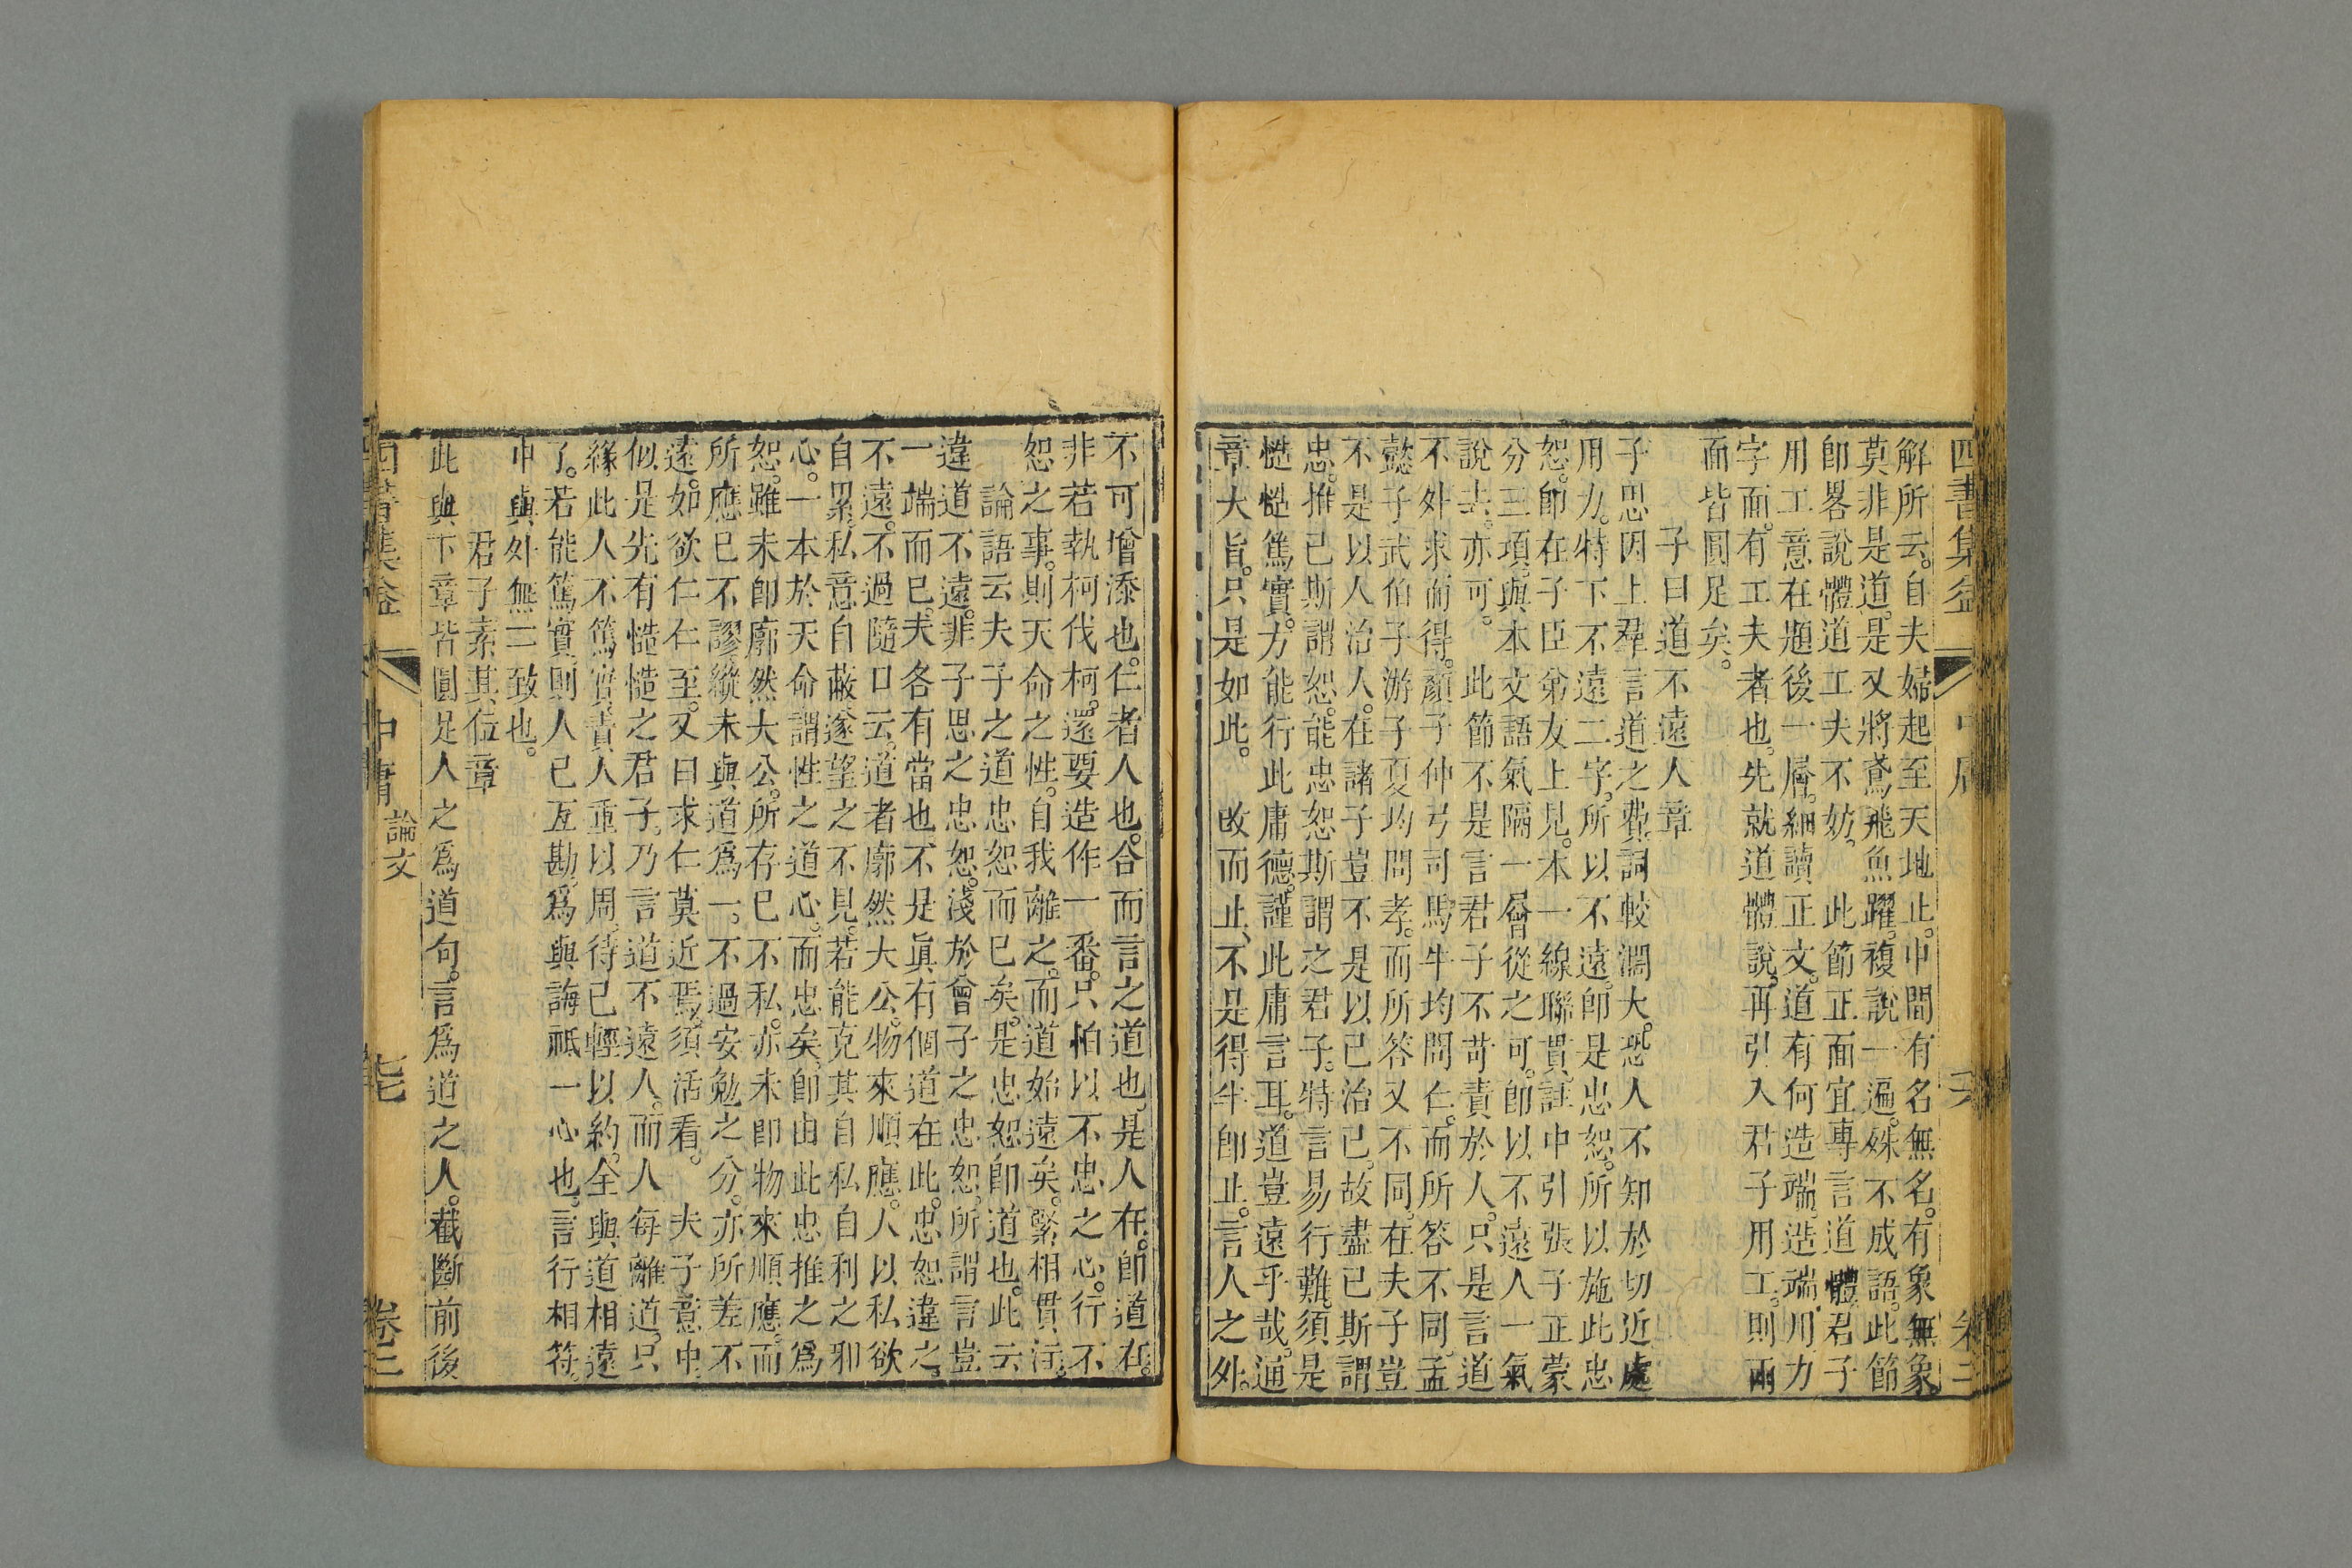 四書集益 中庸 六 卷三
解所云自夫婦起至天地止。中間有名無名。有象無象。
莫非是道。是又將鳶飛魚躍。複說一遍。殊不成語。此節
卽畧說體道工夫不妨。 此節正面宜專言道體。君子
用工意在題後一層。細讀正文。道有何造端。造端用力
字面。有工夫者也。先就道體說。再引入君子用工。則兩
面皆圓足矣。
子曰道不遠人章
子思因上群言道之費。詞較濶大。恐人不知於切近處
用力。特下不遠二字。所以不遠。卽是忠恕。所以施此忠
恕。卽在子臣弟友上見。本一線聯貫。註中引張子正蒙
分三項。與本文語氣隔一層。從之可。卽以不遠人一氣
說去。亦可。 此節不是言君子不苛責於人。只是言道
不外求而得。顏子仲弓司馬牛均問仁。而所答不同。孟
懿子武伯子游子夏均問孝。而所答又不同。在夫子豈
不是以人治人。在諸子豈不是以已治已。故盡已斯謂
忠。推已斯謂恕。能忠恕斯謂之君子。特言易行難。須是
慥慥篤實。方能行此庸德。謹此庸言耳。道豈遠乎哉。通
章大旨。只是如此。 改而止、不是得半卽止。言人之外。
不可增添也。仁者人也。合而言之道也。是人在。卽道在。
非若執柯伐柯。還要造作一番。只怕以不忠之心。行不
恕之事。則天命之性。自我離之。而道始遠矣。緊相貫注。
論語云夫子之道忠恕而已矣。是忠恕卽道也。此云
違道不遠。非子思之忠恕。淺於曾子之忠恕。所謂言豈
一端而已。夫各有當也。不是眞有個道在此。忠恕違之
不遠。不過隨口云。道者廓然大公。物來順應。人以私欲
自累。私意自蔽。遂望之不見。若能克其自私自利之邪
心。一本於天命謂性之道心。而忠矣。卽由此忠推之爲
恕。雖未卽廓然大公。所存已不私。亦未卽物來順應。而
所應已不謬。縱未與道爲一。不過安勉之分。亦所差不
遠。如欲仁仁至。又曰求仁莫近焉。須活看。 夫子意中。
似是先有慥慥之君子。乃言道不遠人。而人每離道。只
緣此人不篤實。責人重以周。待已輕以約。全與道相遠
了。若能篤實。則人已互勘。爲與誨祇一心也。言行相符。
中與外無二致也。
君子素其位章
此與下章皆圓足人之爲道句。言爲道之人。截斷前後
四書集益 中庸 論文 卷三